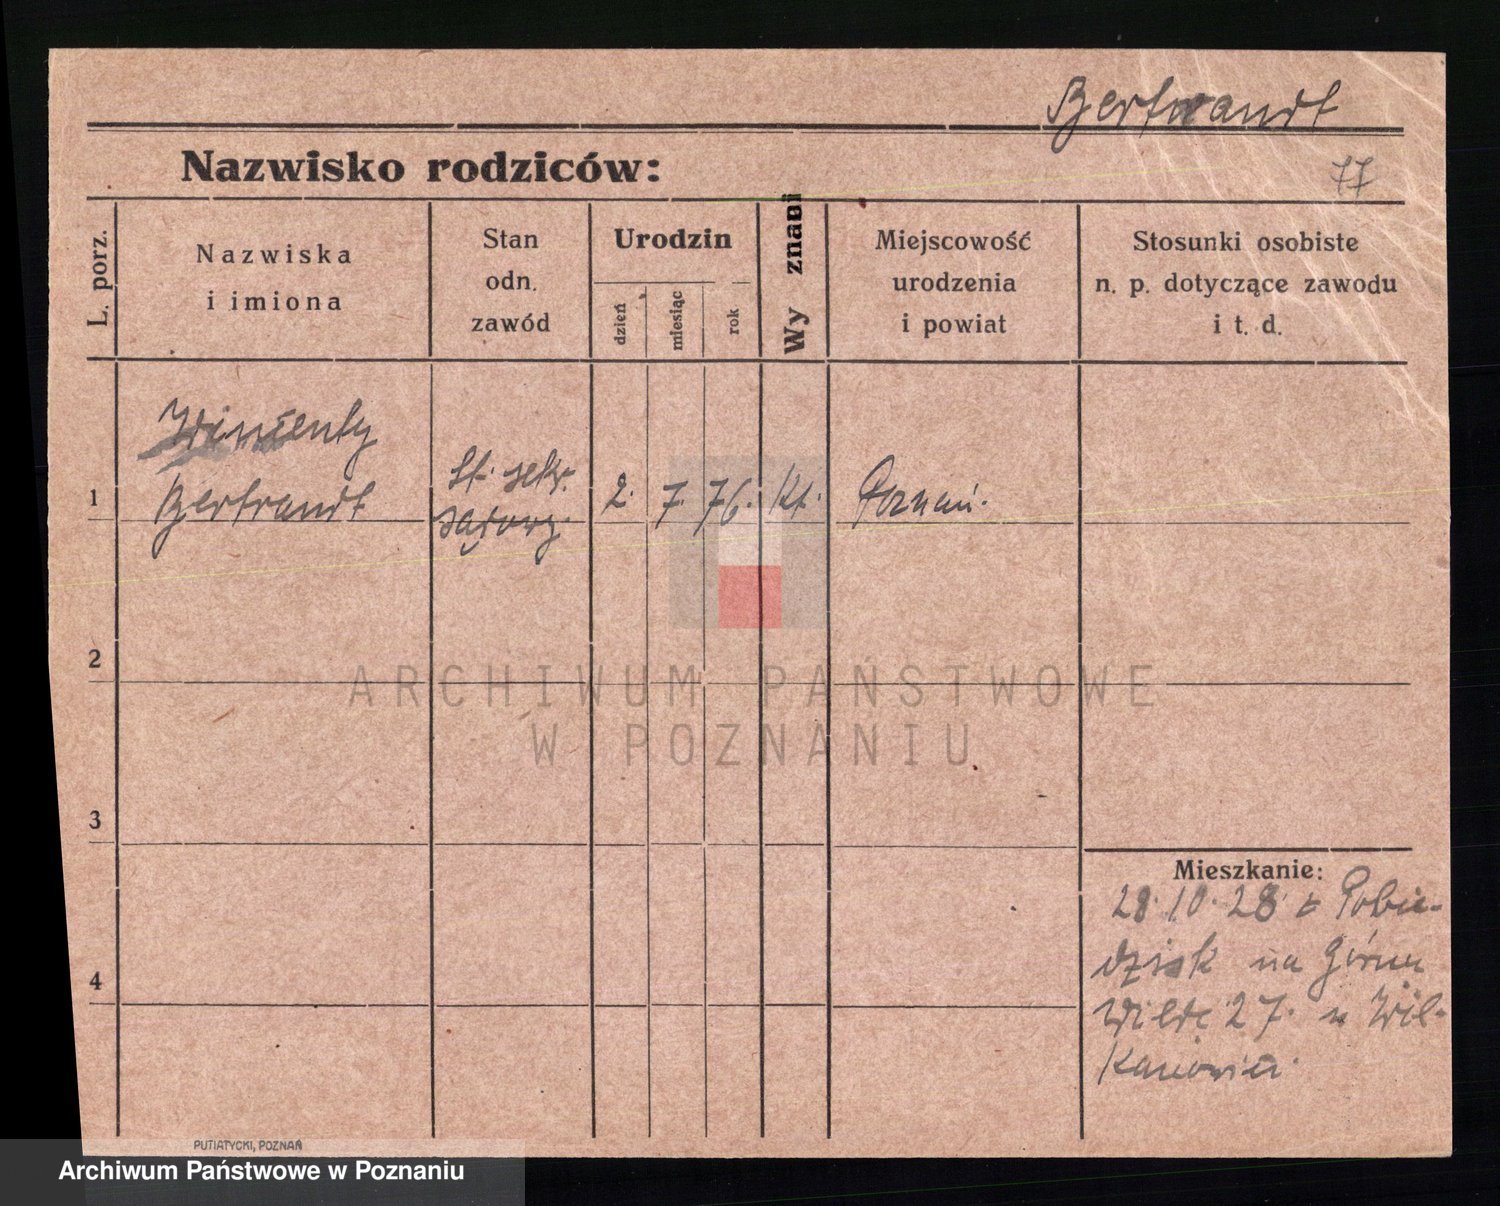 Bertrandt
Nazwisko rodziców:
77
L. porz.
Nazwiska
i imiona
Stan
odn.
zawód
Urodzin
dzień
miesiąc
rok
Wy znani
Miejscowość
urodzenia
i powiat
Stosunki osobiste
n. p. dotyczące zawodu
i t. d.
Wincenty
1
Bertrandt
st. sekr.
sądowy.
2. 7. 76. kt. Poznań.
2
3
4
ARCHIWUM PAŃSTWOWE
W POZNANIU
Mieszkanie:
28.10.28 z Pobie-
dzisk na Górna
Wilde 27. u Wil-
PUTIATYCKI, POZNAŃ
Archiwum Państwowe w Poznaniu